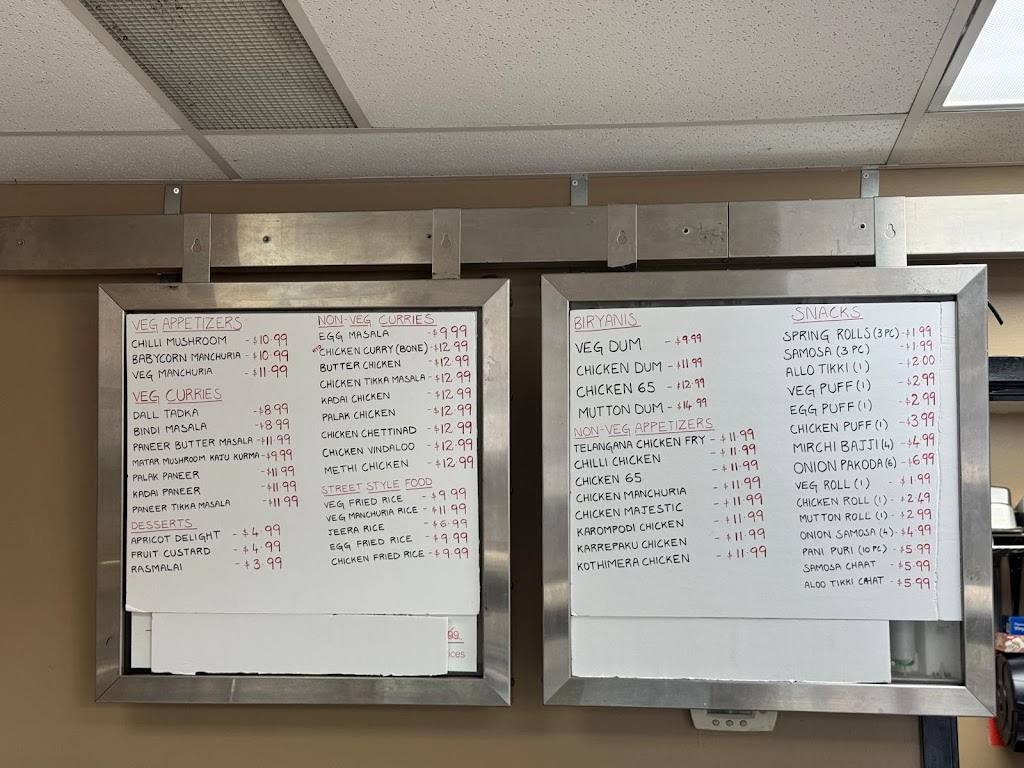 VEG APPETIZERS
CHILLI MUSHROOM - $10.99
BABYCORN MANCHURIA - $10.99
VEG MANCHURIA - $11.99
VEG CURRIES
DALL TADKA - $8.99
BINDI MASALA - $8.99
PANEER BUTTER MASALA - $11.99
MATAR MUSHROOM KAJU KURMA - $9.99
PALAK PANEER - $11.99
KADAI PANEER - $11.99
PANEER TIKKA MASALA - $11.99
DESSERTS
APRICOT DELIGHT - $4.99
FRUIT CUSTARD - $4.99
RASMALAI - $3.99
NON-VEG CURRIES
EGG MASALA - $9.99
CHICKEN CURRY (BONE) - $12.99
BUTTER CHICKEN - $12.99
CHICKEN TIKKA MASALA - $12.99
KADAI CHICKEN - $12.99
PALAK CHICKEN - $12.99
CHICKEN CHETTINAD - $12.99
CHICKEN VINDALOO - $12.99
METHI CHICKEN - $12.99
STREET STYLE FOOD
VEG FRIED RICE - $9.99
VEG MANCHURIA RICE - $11.99
JEERA RICE - $6.99
EGG FRIED RICE - $9.99
CHICKEN FRIED RICE - $9.99
99
ices
BIRYANIS
VEG DUM - $9.99
CHICKEN DUM - $11.99
CHICKEN 65 - $12.99
MUTTON DUM - $14.99
NON-VEG APPETIZERS
TELANGANA CHICKEN FRY - $11.99
CHILLI CHICKEN - $11.99
CHICKEN 65 - $11.99
CHICKEN MANCHURIA - $11.99
CHICKEN MAJESTIC - $11.99
KAROMPODI CHICKEN - $11.99
KARREPAKU CHICKEN - $11.99
KOTHIMERA CHICKEN - $11.99
SNACKS
SPRING ROLLS (3 PC) - $1.99
SAMOSA (3 PC) - $1.99
ALLO TIKKI (1) - $2.00
VEG PUFF (1) - $2.99
EGG PUFF (1) - $2.99
CHICKEN PUFF (1) - $3.99
MIRCHI BAJJI (4) - $4.99
ONION PAKODA (6) - $6.99
VEG ROLL (1) - $1.99
CHICKEN ROLL (1) - $2.49
MUTTON ROLL (1) - $2.99
ONION SAMOSA (4) - $4.99
PANI PURI (10 PC) - $5.99
SAMOSA CHAAT - $5.99
ALOO TIKKI CHAT - $5.99